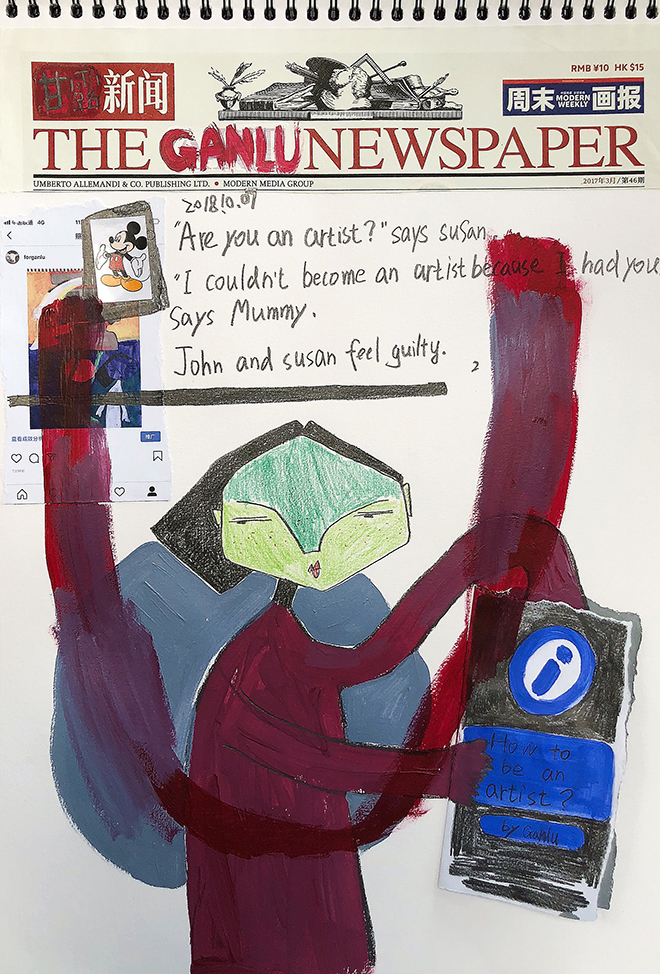 RMB ¥10 HK $15
甘露新闻
周末画报
MODERN WEEKLY
THE GANLU NEWSPAPER
UMBERTO ALLEMANDI & CO. PUBLISHING LTD. • MODERN MEDIA GROUP
2017年3月/第46期
2018.10.07
4G
forganlu
"Are you an artist?" says susan
"I couldn't become an artist because I had you
says Mummy.
John and susan feel guilty.
2
查看成效分析
推广
i
How to
be an
artist?
by Ganlu